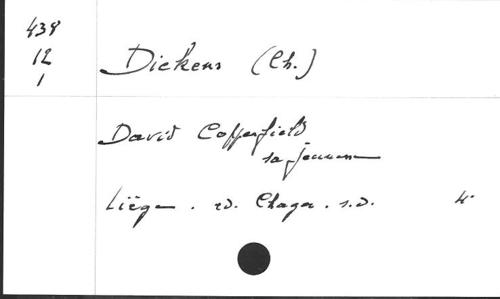 438
12
1
Dickens (Ch.)
David Copperfield
sa jeunesse
Liège. ed. Chagor. s.d. 4°